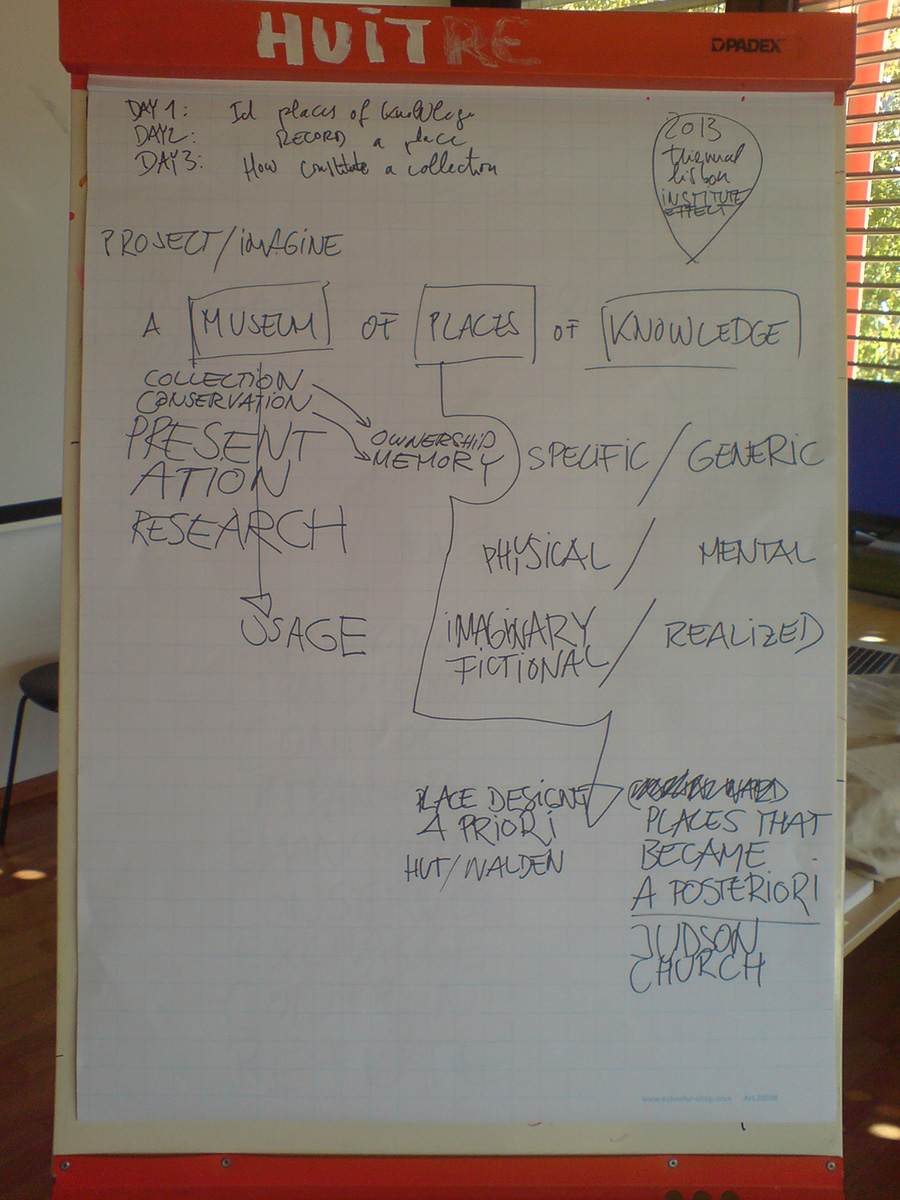 HUITRE
DPADEX
DAY 1: Id places of knowledge
DAY2: RECORD a place
DAY3: How constitute a collection
2013
thermal
lisbon
INSTITUTE
EFFECT
PROJECT/IMAGINE
A MUSEUM OF PLACES OF KNOWLEDGE
COLLECTION
CONSERVATION
PRESENT
ATION
RESEARCH
USAGE
OWNERSHIP
MEMORY
SPECIFIC / GENERIC
PHYSICAL / MENTAL
IMAGINARY / REALIZED
FICTIONAL
PLACE DESIGNE
A PRIORI
HUT/WALDEN
PLACES THAT
BECAME
A POSTERIORI
JUDSON
CHURCH